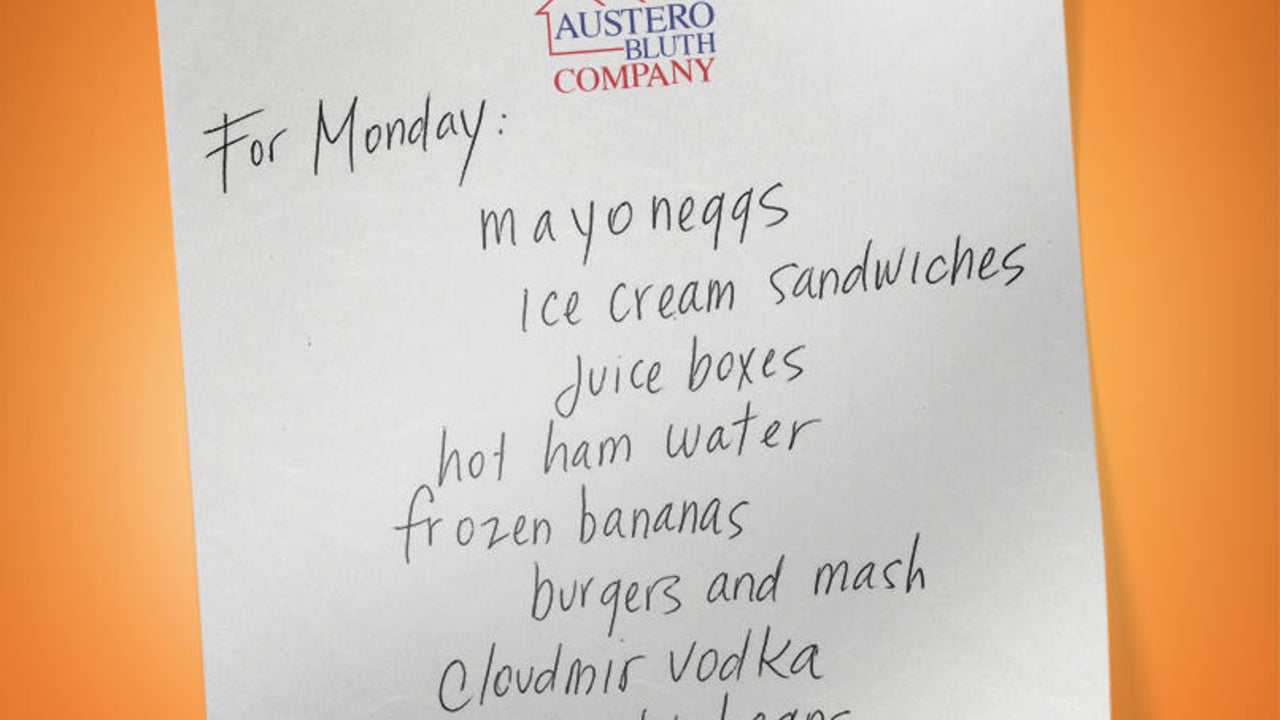 AUSTERO
BLUTH
COMPANY
For Monday:
mayoneggs
ice cream sandwiches
juice boxes
hot ham water
frozen bananas
burgers and mash
Cloudmir vodka